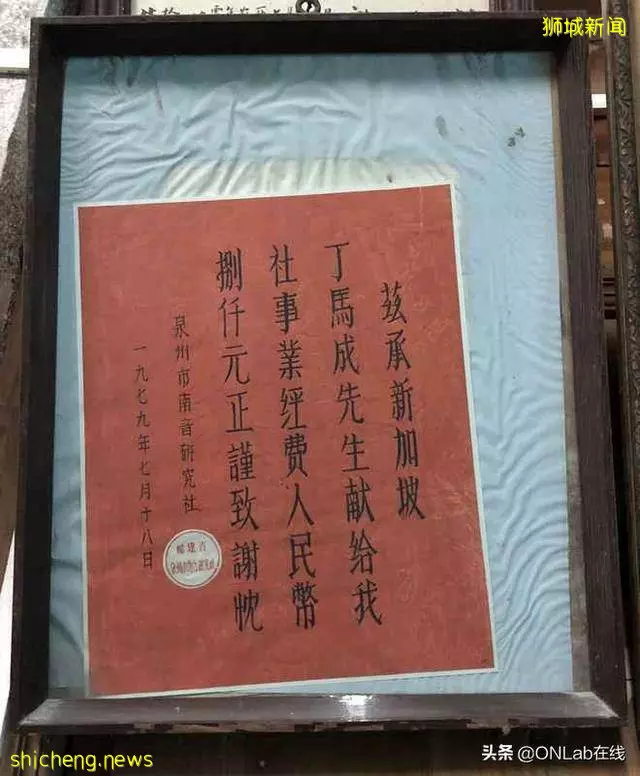 狮城新闻
茲承新加坡
丁馬成先生献给我
社事業经費人民幣
捌仟元正謹致謝忱
泉州市南音研究社
一九七九年七月十八日
shicheng.news
头条 @ONLab在线